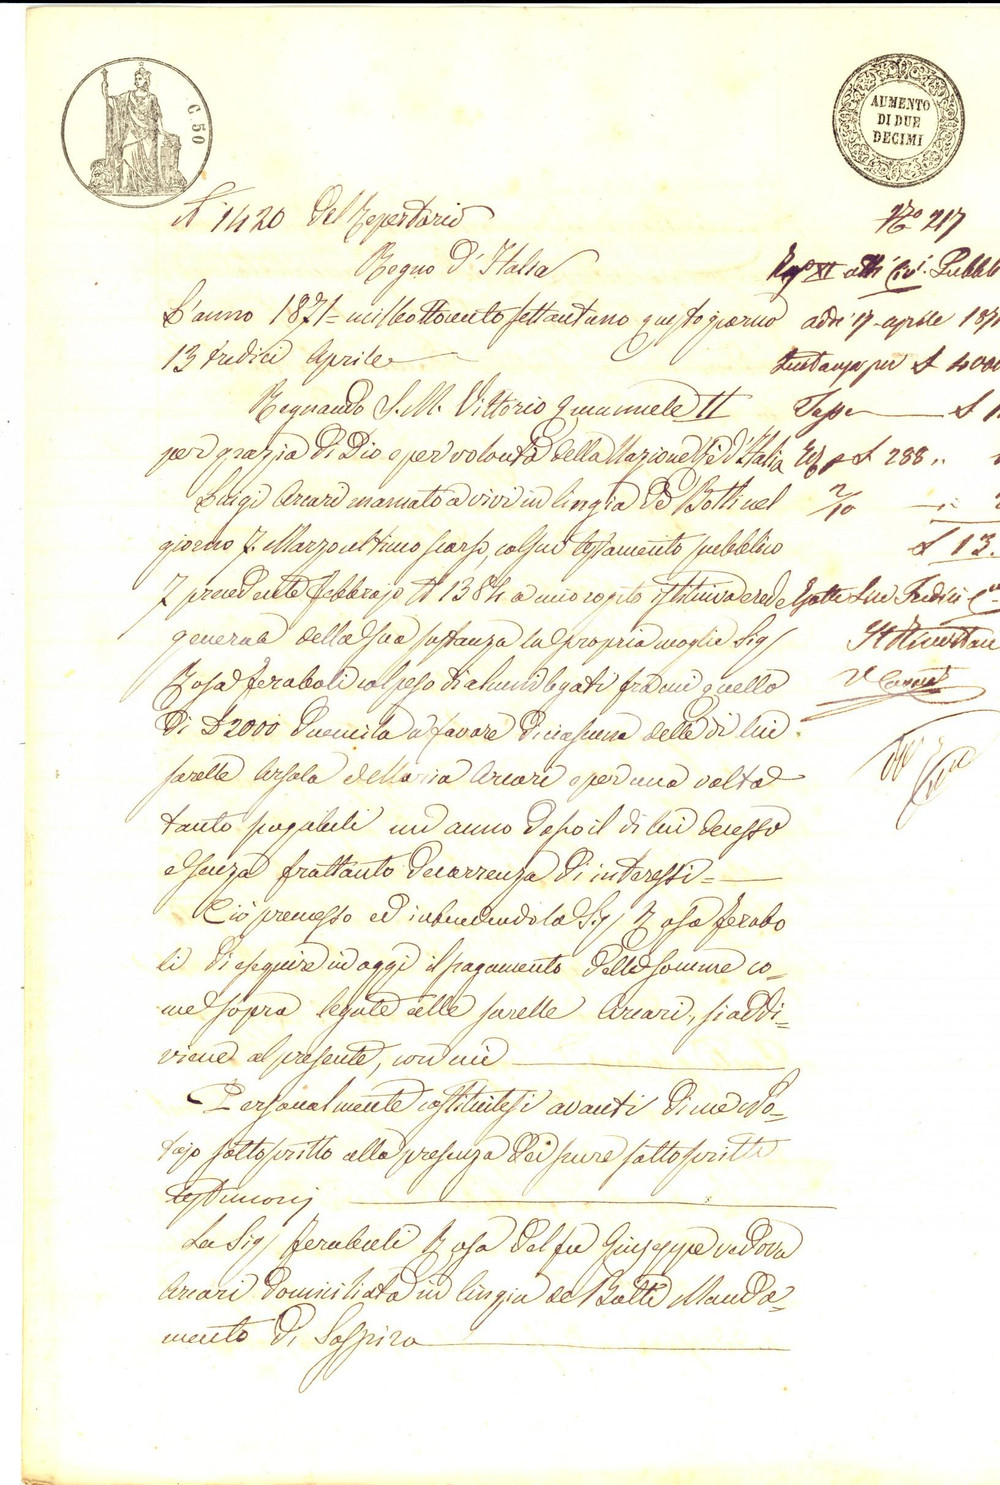 C. 50
AUMENTO
DI DUE
DECIMI
N° 1420 del Repertorio
Regno d'Italia
L'anno 1871 = milleottocento settantuno questo giorno
13 tredici Aprile
Regnando S. M. Vittorio Emanuele II
per grazia di Dio e per volontà della Nazione Re d'Italia
Luigi Arcari mancato a vivi in Cingia de Botti nel
giorno 7. Marzo ultimo scorso, col suo testamento pubblico
7 precedente Febbrajo N° 1384 a mio rogito istituiva erede
generale della sua sostanza la propria moglie Sig.
Rosa Feraboli col peso di alcuni legati fra cui quello
di £ 2000 duemila a favore di ciascuna delle di lui
sorelle Angela e Maria Arcari e per una volta
tanto pagabili un anno dopo il di lui decesso
e senza frattanto decorrenza di interessi =
Ciò premesso ed intendendo la Sig. Rosa Ferabo
li di eseguire in oggi il pagamento delle somme co-
me sopra legate alle sorelle Arcari, si addi=
viene al presente, con cui
Personalmente costituitesi avanti di me No-
tajo sottoscritto alla presenza dei pure sottoscritti
testimonj
La Sig. Feraboli Rosa del fu Giuseppe vedova
Arcari domiciliata in Cingia de Botti Manda-
mento di Sospiro
N° 217
Reg° XI atti Civi. Pubbli
addì 17 aprile 1871
£ 4000
Tassa £ 1
£ 288
2/10
£ 13.
Il Ricevitore